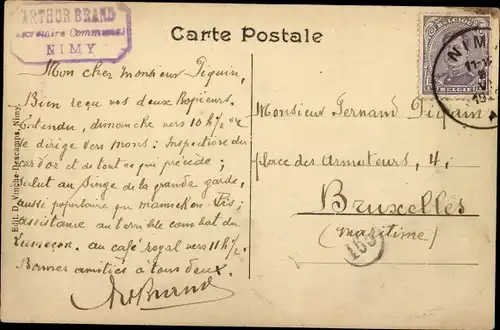 ARTHUR BRAND
Secrétaire Communal
NIMY
Carte Postale
BELGIQUE
15
BELGIË
NIMY
Mon cher Monsieur Piquin,
Bien reçu vos deux
Entendu, dimanche vers 10 h 1/2 on
se dirige vers Mons : Inspection du
car d'or et de tout ce qui précède ;
salut au Singe de la grande garde,
aussi populaire que manneken-Pis ;
assistance au terrible combat du
Lumeçon. au café royal vers 11 h 1/2.
Bonnes amitiés à tous deux.
ArBrand
Monsieur Fernand Piquin,
place des Armateurs, 4,
Bruxelles
(maritime)
155
Edit. D. Vinche-Descamps, Nimy.